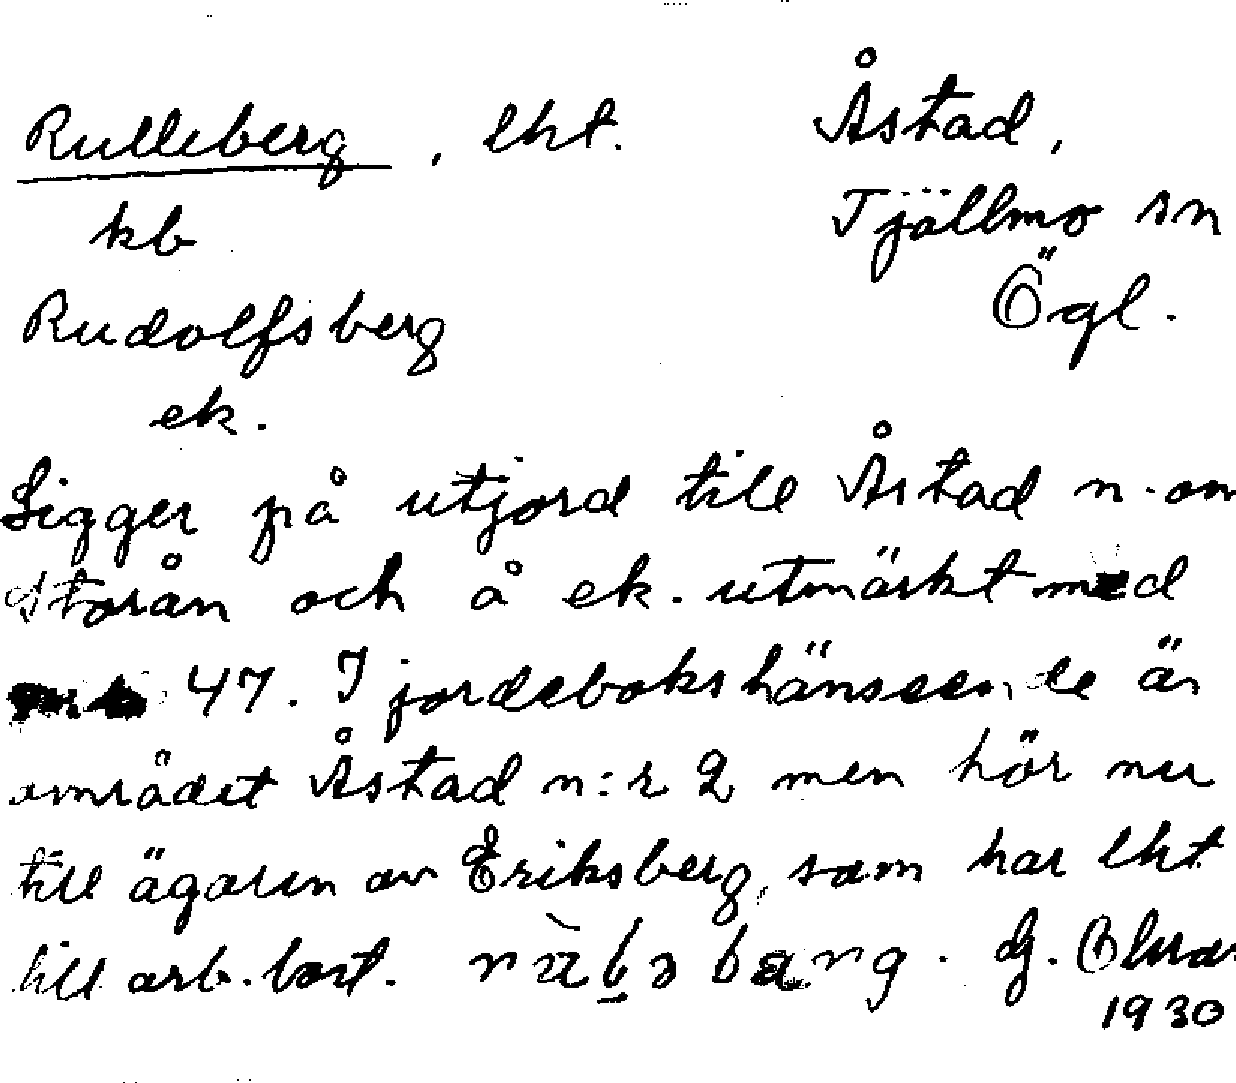 Rulleberg, lht. Åstad,
kb Tjällmo sn
Rudolfsberg Ögl.
ek.
Ligger på utjord till Åstad n. om
Storån och å ek. utmärkt med
47. I jordebokshänseende är
området Åstad n:r 2 men hör nu
till ägaren av Eriksberg, som har lht
till arb. bost. G.
1930